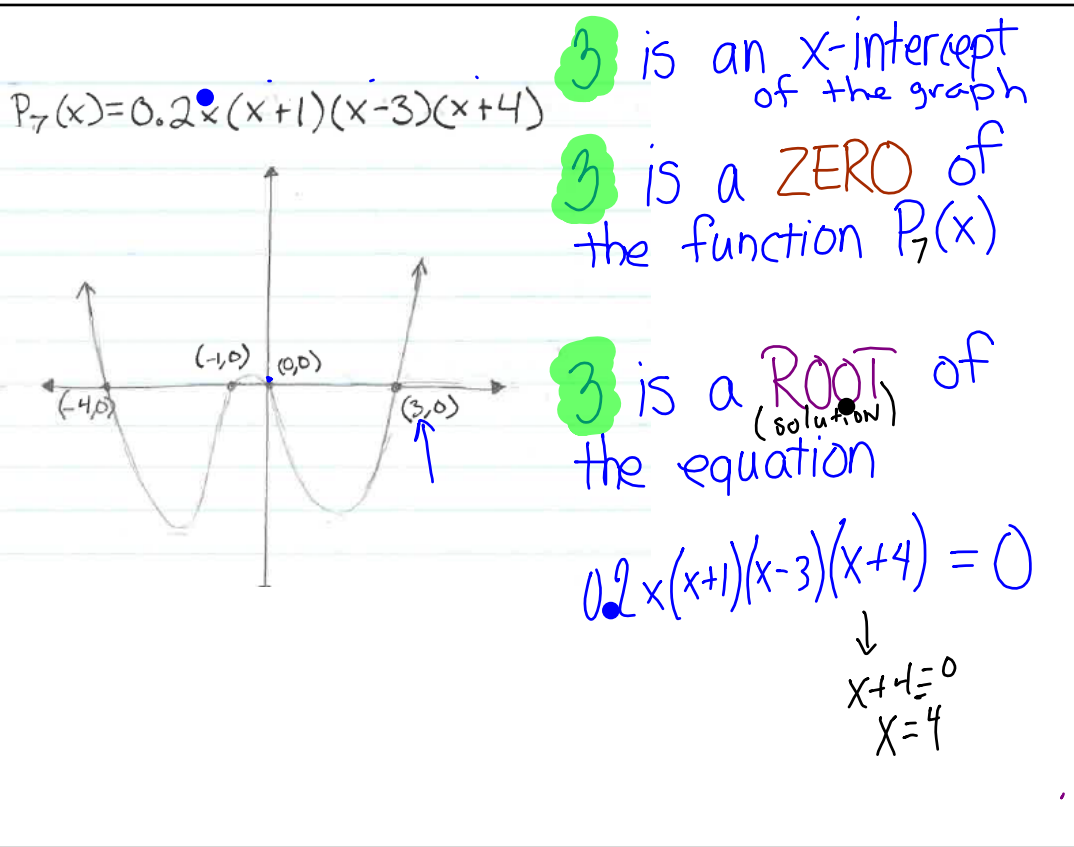 P₇(x)=0.2x(x+1)(x-3)(x+4)
(-1,0)
(0,0)
(-4,0)
(3,0)
3 is an x-intercept
of the graph
3 is a ZERO of
the function P₇(x)
3 is a ROOT of
(solution)
the equation
0.2x(x+1)(x-3)(x+4) = 0
x+4=0
x=4